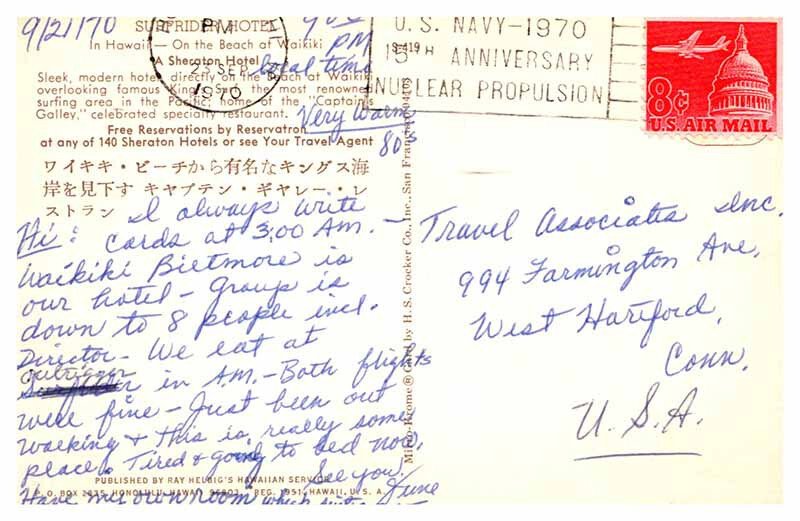 9/21/70
SURFRIDER HOTEL
In Hawaii — On the Beach at Waikiki
A Sheraton Hotel
PM
local time
Sleek, modern hotel directly on the Beach at Waikiki
overlooking famous King's Surf, the most renowned
surfing area in the Pacific; home of the "Captain's
Galley," celebrated specialty restaurant.
Very Warm
80s
Free Reservations by Reservatron
at any of 140 Sheraton Hotels or see Your Travel Agent
ワイキキ・ビーチから有名なキングス海
岸を見下す キャプテン・ギャレー・レ
ストラン
I always write
Hi: cards at 3:00 AM. —
Waikiki Bietmore is
our hotel — Group is
down to 8 people incl.
Director — We eat at
outrigger
in A.M. — Both flights
were fine — Just been out
walking & this is really some
place. Tired & going to bed now.
See you.
June
PUBLISHED BY RAY HELBIG'S HAWAIIAN SERVICE
P. O. BOX 2835, HONOLULU, HAWAII 96803 REG. 1951, HAWAII, U. S. A.
Have my own room which
Mirro-Krome® Card by H. S. Crocker Co., Inc., San Francisco
PM
23 SEP
1970
U. S. NAVY-1970
S-419
15TH ANNIVERSARY
NUCLEAR PROPULSION
8¢
U.S. AIR MAIL
Travel Associates Inc.
994 Farmington Ave.
West Hartford,
Conn.
U.S.A.